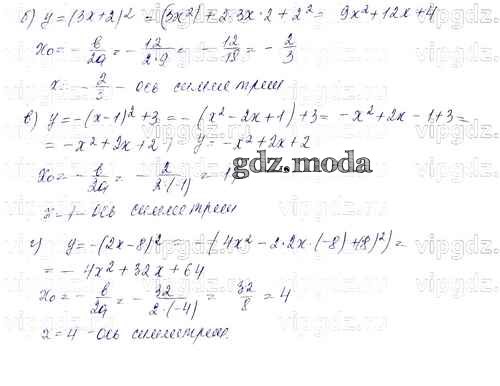 б) y = (3x+2)² = (3x²) + 2·3x·2 + 2² = 9x² + 12x + 4
x₀ = - b/2a = - 12/2·9 = - 12/18 = - 2/3
x = - 2/3 - ось симметрии
в) y = -(x-1)² + 3 = -(x² - 2x + 1) + 3 = -x² + 2x - 1 + 3 =
= -x² + 2x + 2 ; y = -x² + 2x + 2
x₀ = - b/2a = - 2/2·(-1) = 1
gdz.moda
x = 1 - ось симметрии
г) y = -(2x-8)² = -(4x² - 2·2x·(-8) + 8)²) =
= - 4x² + 32x + 64
x₀ = - b/2a = - 32/2·(-4) = 32/8 = 4
x = 4 - ось симметрии.